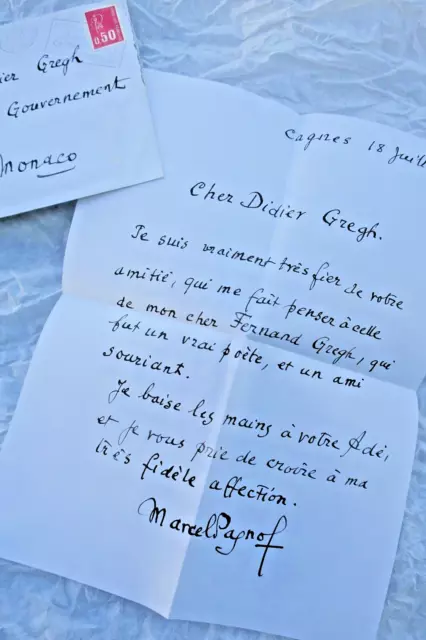 0.50
ier Gregh
Gouvernement
Monaco
Cagnes 18 Juill
Cher Didier Gregh.
Je suis vraiment très fier de votre
amitié, qui me fait penser à celle
de mon cher Fernand Gregh, qui
fut un vrai poète, et un ami
souriant.
Je baise les mains à votre Adé,
et je vous prie de croire à ma
très fidèle affection.
Marcel Pagnol